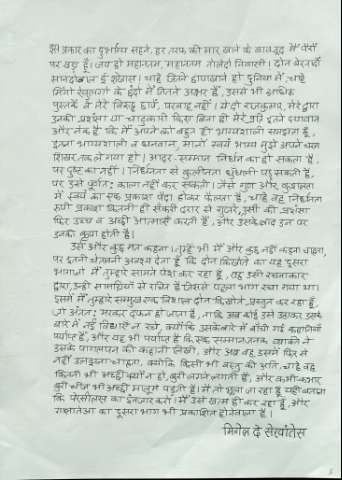 इस प्रकार का दुर्भाग्य सहने, हर तरफ की मार खाने के बावजूद मैं पैरों
पर खड़ा हूँ। जय हो महानतम, महानतम तोलेदो निवासी। दोन बेरनार्दो
सानदोबाल ई रोखास। चाहे जितने छापाखाने हों दुनिया में, चाहे
मिंगो रेवुल्गो के छंदों में जितने अक्षर हैं, उससे भी अधिक
पुस्तकें वे मेरे विरुद्ध छापें, परवाह नहीं। ये दो राजकुमार, मेरे द्वारा
उनकी प्रशंसा या चाटुकारी किए बिना ही मेरे प्रति इतने दयावान
और नेक हैं कि मैं अपने को बहुत ही भाग्यशाली समझता हूँ,
इतना भाग्यशाली व धनवान, मानो स्वयं भाग्य मुझे अपने धन
शिखर तक ले गया हो। आदर-सम्मान निर्धन का हो सकता है,
पर दुष्ट का नहीं। निर्धनता से कुलीनता धुंधली पड़ सकती है,
पर उसे पूर्णतः काला नहीं कर सकती। जैसे गुण और कुशलता
में स्वयं का एक प्रकाश पैदा होकर फैलता है, चाहे वह निर्धनता
रूपी प्रकाश कितनी ही सँकरी दरार से गुजरे, उसकी प्रशंसा
फिर उच्च व अच्छी आत्माएँ करती हैं, और उसके बाद उन पर
उनकी कृपा होती है।
उसे और कुछ मत कहना। तुम्हें भी मैं और कुछ नहीं कहना चाहता,
पर इतनी चेतावनी अवश्य देता हूँ कि दोन किख़ोते का यह दूसरा
भाग जो मैं तुम्हारे सामने पेश कर रहा हूँ, वह उसी रचनाकार
द्वारा, उन्हीं सामग्रियों से रचित है जिससे पहला भाग रचा गया था।
इसमें मैं तुम्हारे सम्मुख एक विशाल दोन किख़ोते प्रस्तुत कर रहा हूँ,
जो अंततः मरकर दफन हो जाता है, ताकि अब कोई उसे उठाकर उसके
बारे में नई किताबें न रचे, क्योंकि उसके बारे में बाँची गई कहानियाँ
पर्याप्त हैं, और यह भी पर्याप्त है कि एक सम्मानजनक व्यक्ति ने
उसके पागलपन की कहानी लिखी, और अब वह उसमें फिर से
नहीं उलझना चाहता, क्योंकि किसी भी वस्तु की अति, चाहे वह
कितनी भी अच्छी क्यों न हो, बुरी लगने लगती है, और कभी-कभार
बुरी चीज भी अच्छी मालूम पड़ती है। मैं तो भूला जा रहा हूँ यही बताना
कि पेर्सीलेस का इंतजार करो। मैं उसे खत्म ही कर रहा हूँ, और
गालातेआ का दूसरा भाग भी प्रकाशित होनेवाला है।
मिगेल दे सेरवांतेस